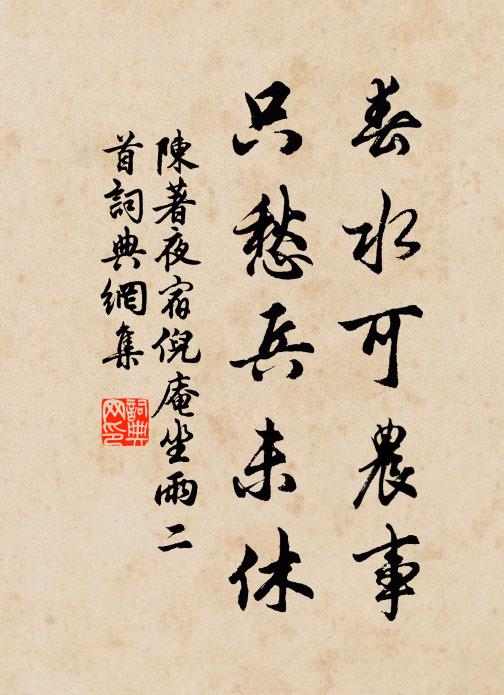 春水可農事
只愁兵未休
陳著夜宿倪庵坐雨二
首詞典網集
詞典
网印